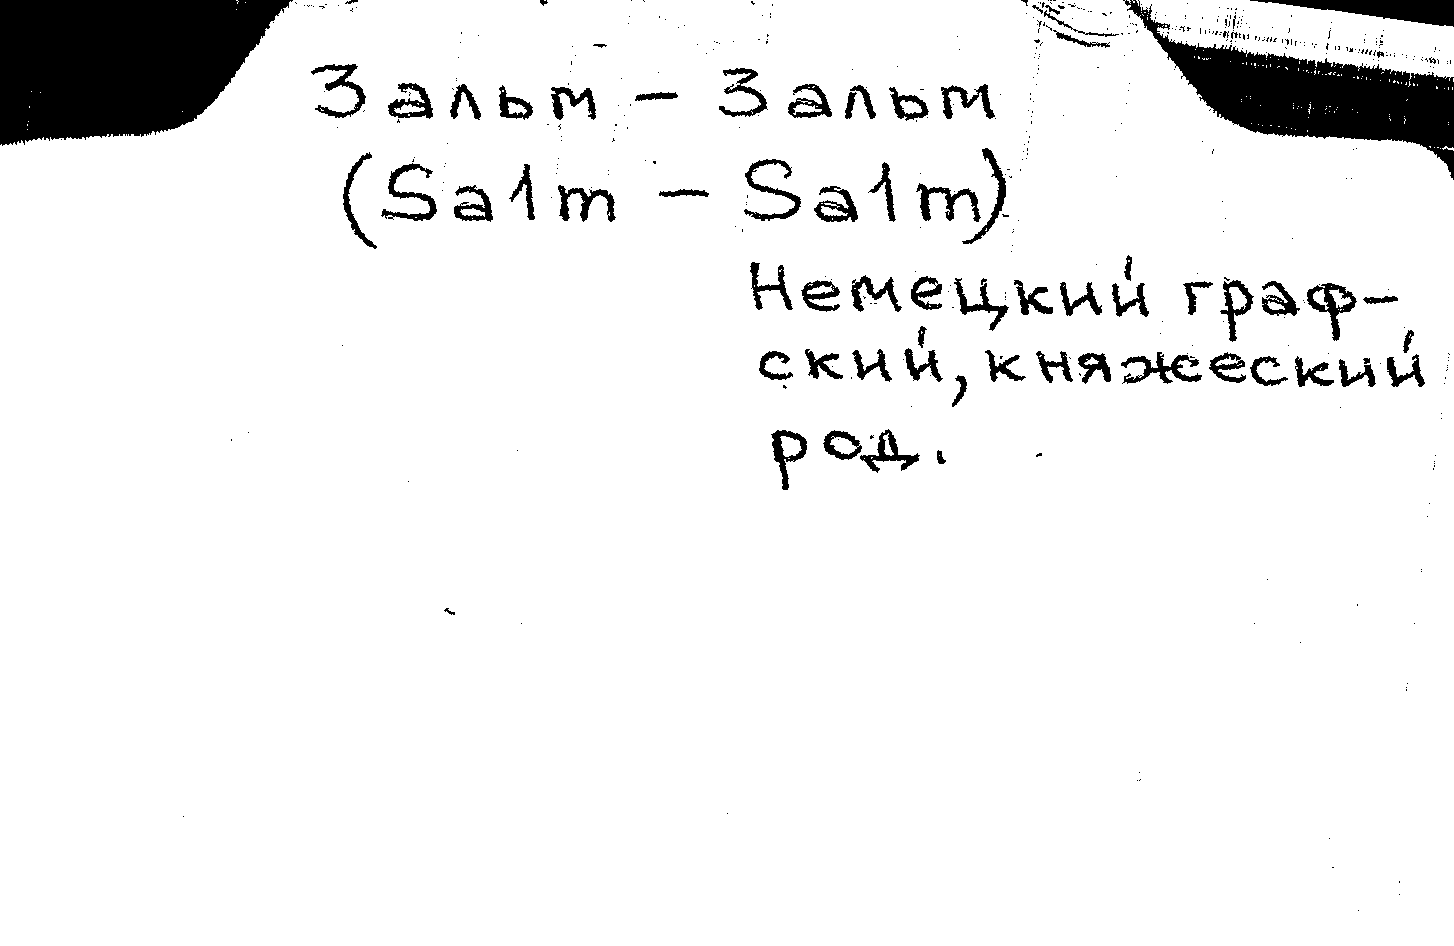 Зальм - Зальм
(Salm - Salm)
Немецкий граф-
ский, княжеский
род.